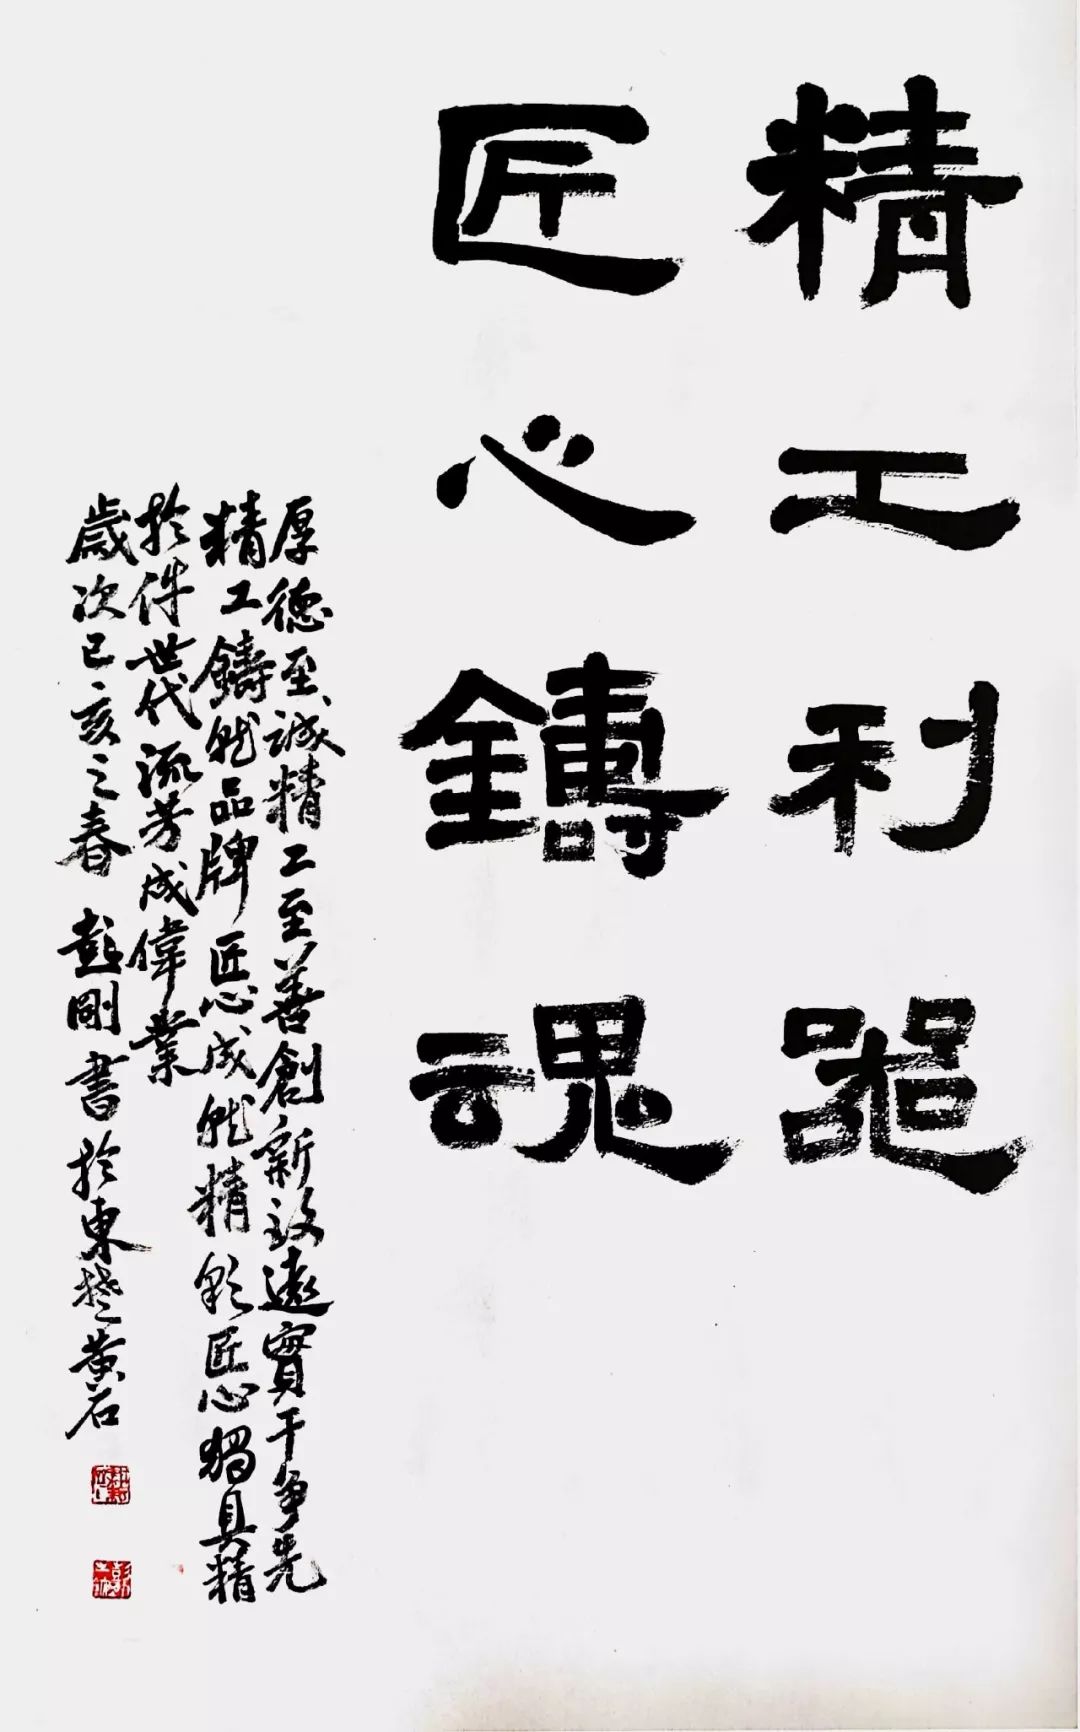 精工利器
匠心鑄魂
厚德至誠精工至善創新致遠實干争先
精工鑄就品牌匠心成就精彩匠心獨具精
於件世代流芳成偉業
歲次己亥之春 彭剛書於東楚黄石